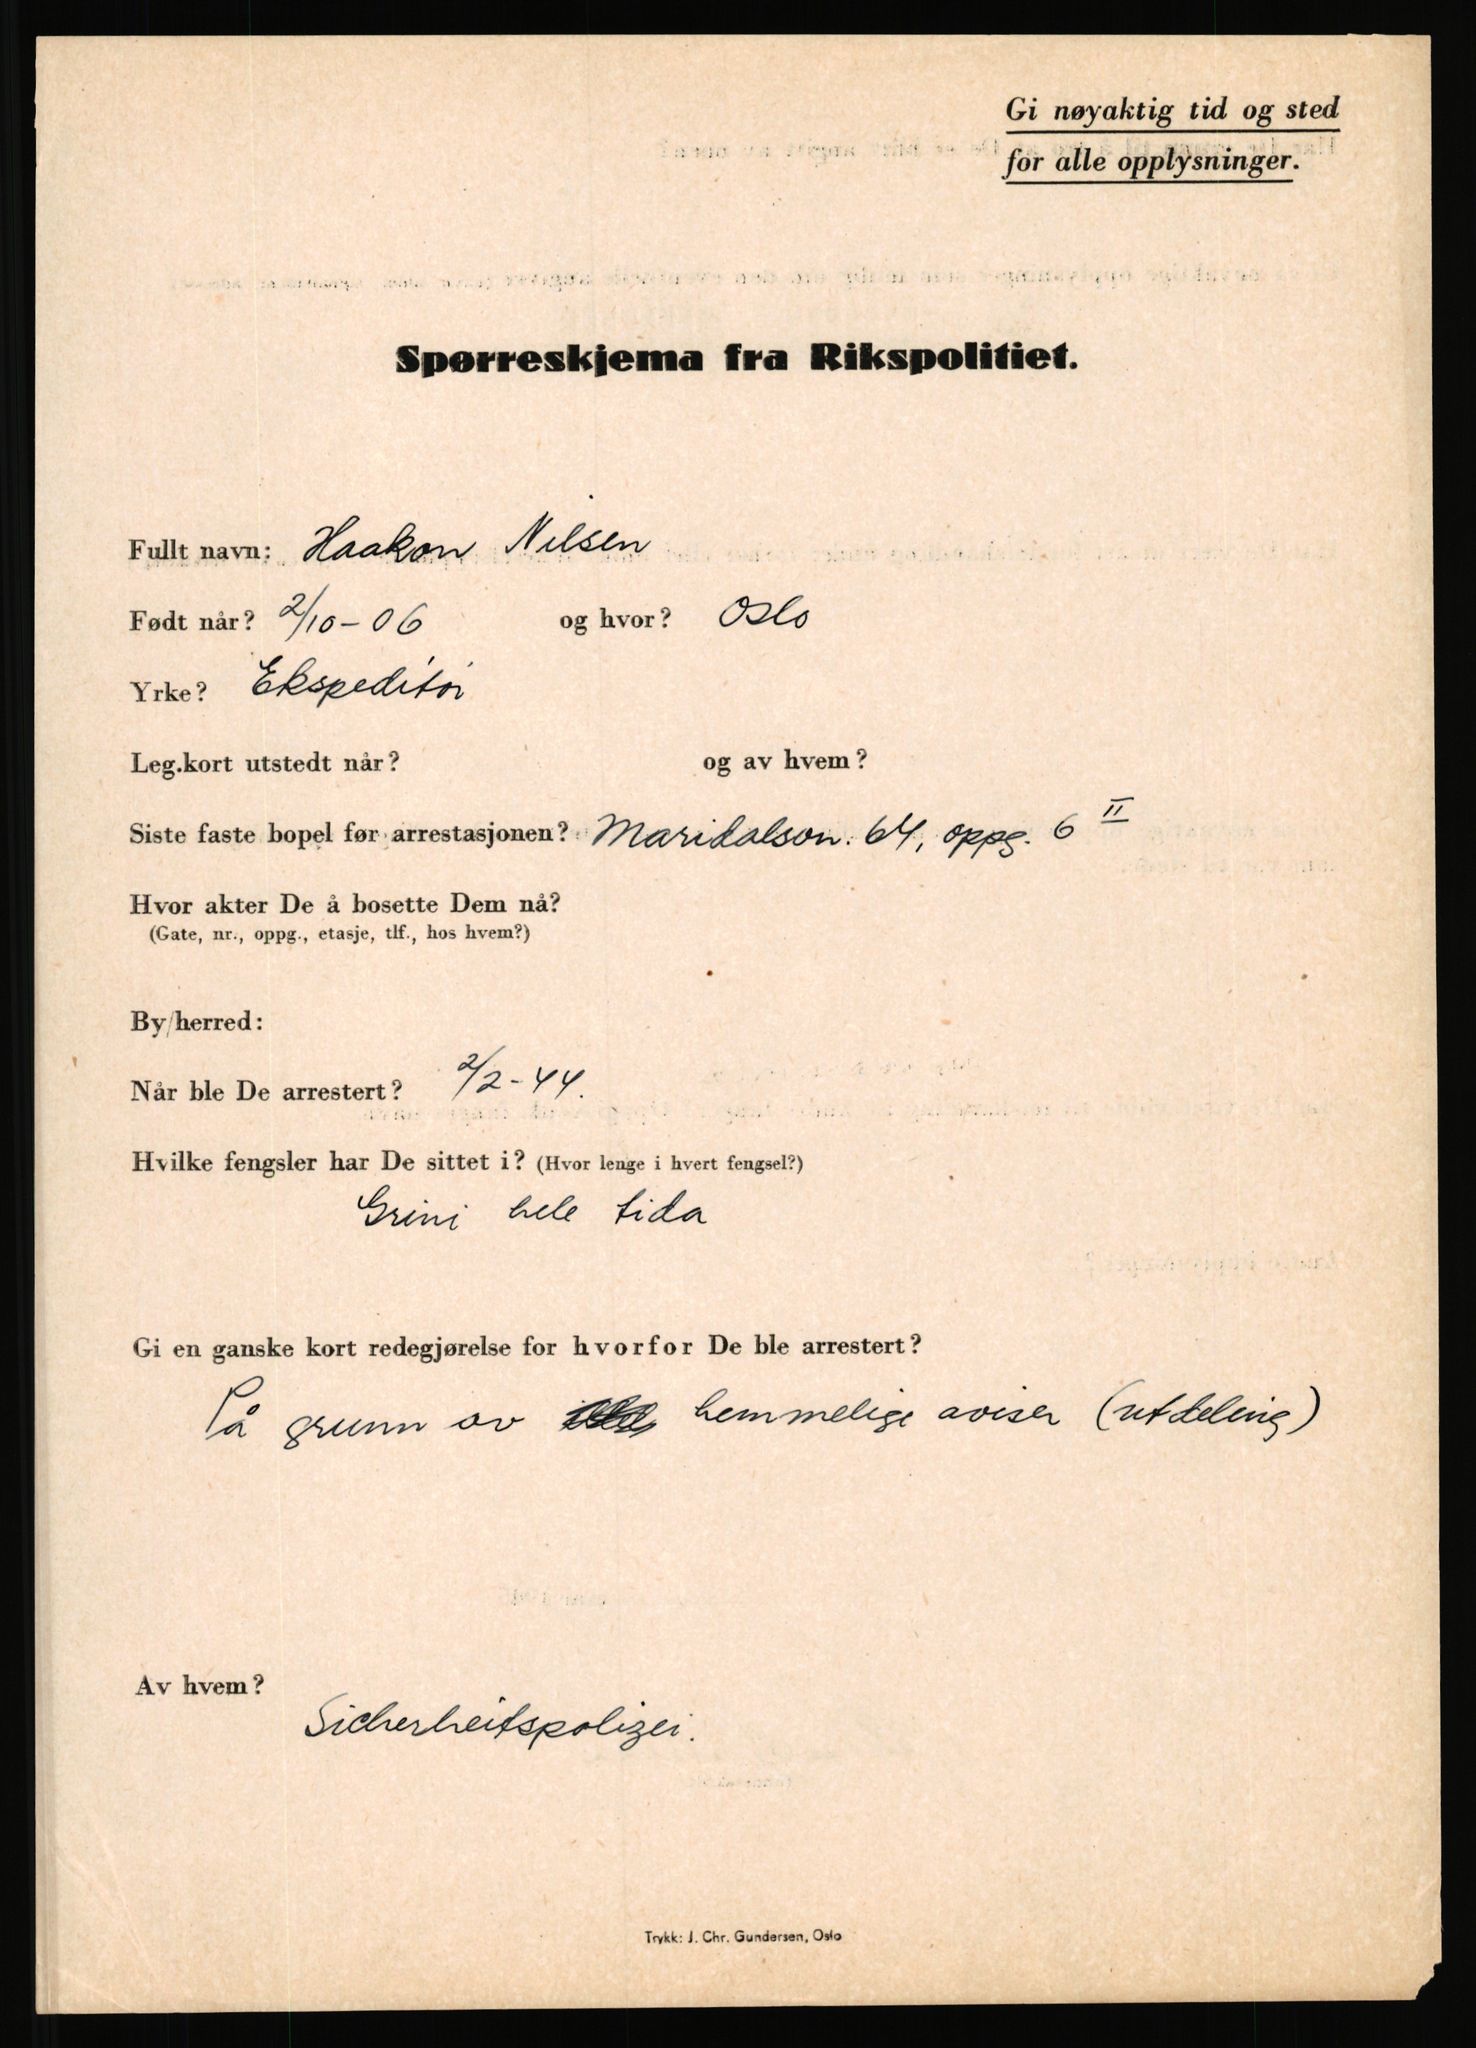 Gi nøyaktig tid og sted
for alle opplysninger.
Spørreskjema fra Rikspolitiet.
Fullt navn: Haakon Nilsen
Født når? 2/10-06 og hvor? Oslo
Yrke? Ekspeditør
Leg.kort utstedt når? og av hvem?
Siste faste bopel før arrestasjonen? Maridalsvn. 64, oppg. 6 II
Hvor akter De å bosette Dem nå?
(Gate, nr., oppg., etasje, tlf., hos hvem?)
By/herred:
Når ble De arrestert? 2/2-44.
Hvilke fengsler har De sittet i? (Hvor lenge i hvert fengsel?)
Grini hele tida
Gi en ganske kort redegjørelse for hvorfor De ble arrestert?
På grunn av hemmelige aviser (utdeling)
Av hvem?
Sicherheitspolizei.
Trykk: J. Chr. Gundersen, Oslo